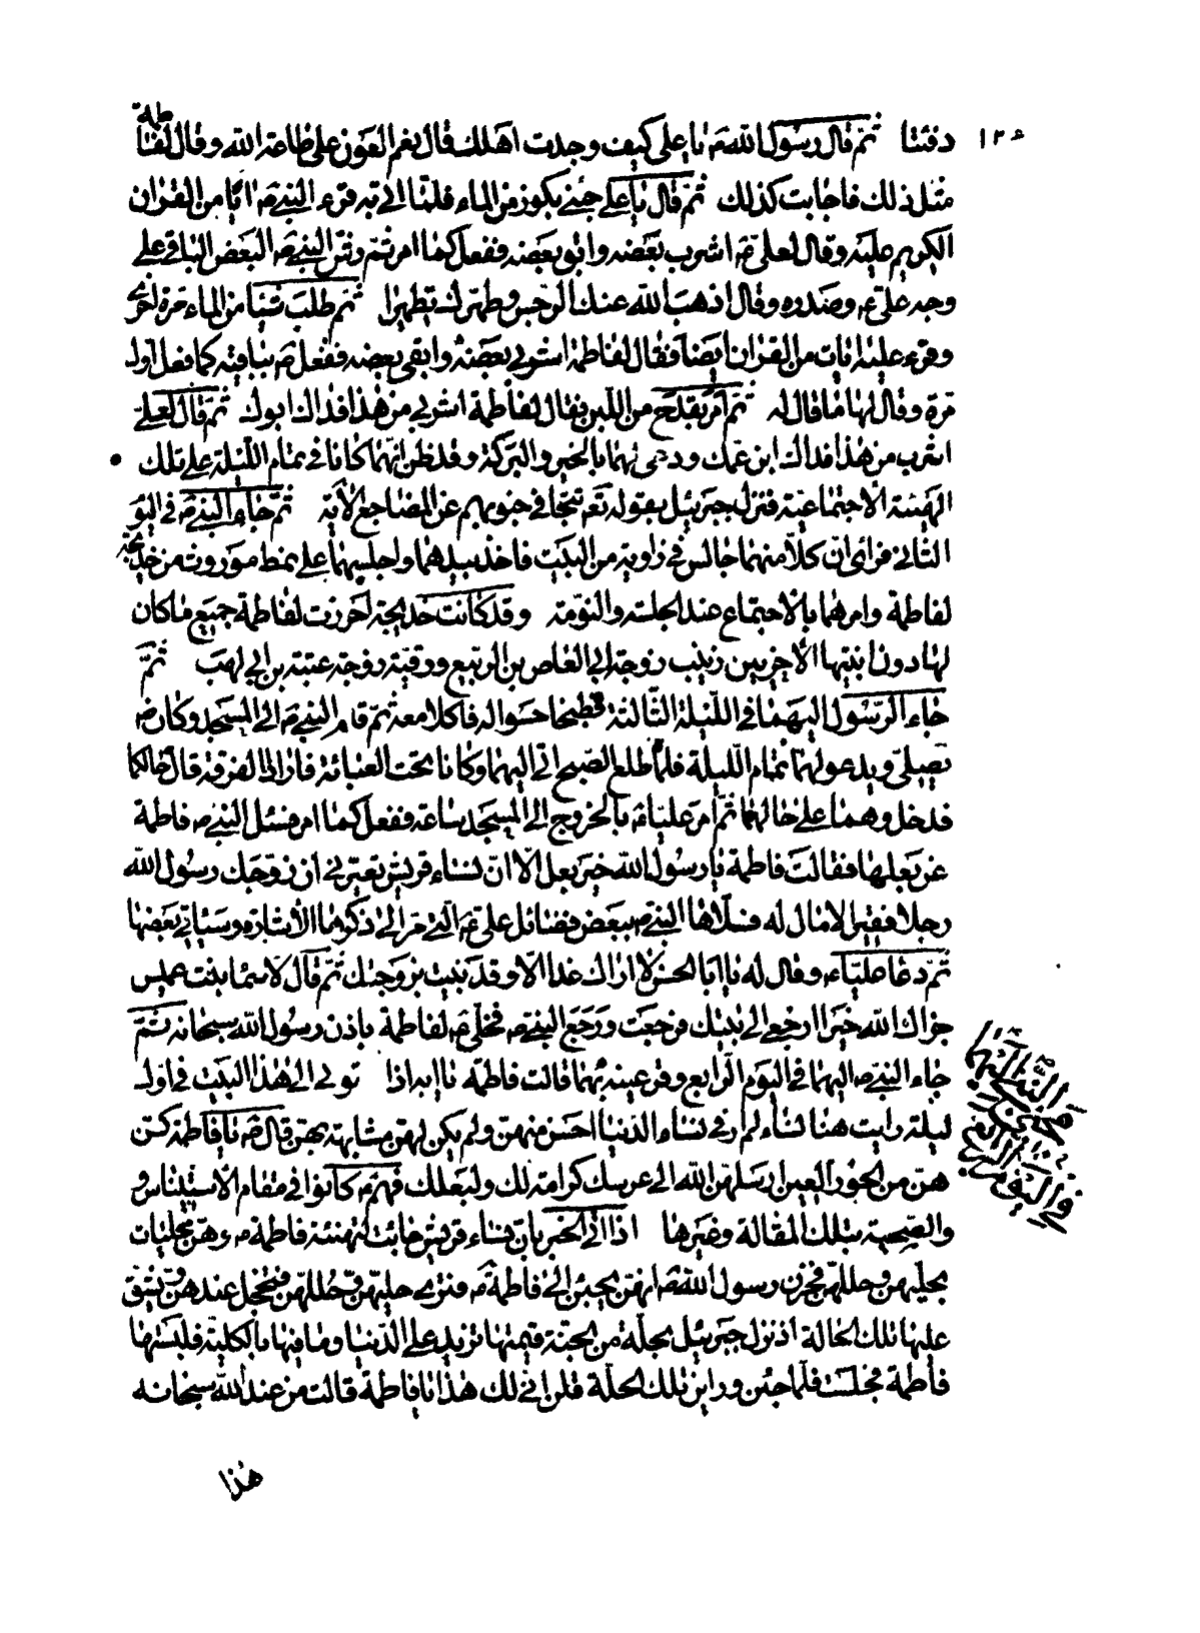 دفئتا ثم قال رسول الله ص يا علي كيف وجدت اهلك قال نعم العون على طاعة الله وقال لفاطمة
مثل ذلك فاجابت كذلك ثم قال يا علي جئني بكوز من الماء فلما اتى به قرء النبي ص ايا من القران
الكريم عليه وقال لعلي ع اشرب بعضه وابق بعضه ففعل كما امر ثم رش النبي ص البعض الباقي على
وجه علي ع وصدره وقال اذهب الله عنك الرجس وطهرك تطهيرا ثم طلب شيئا من الماء مرة اخرى
وقرء عليه ايات من القران ايضا فقال لفاطمة اشربي بعضه وابقى بعضه ففعل ص بباقيه كما فعل اول
مرة وقال لها ما قال له ثم امر بقدح من اللبن فقال لفاطمة اشربي من هذا فداك ابوك ثم قال لعلي
اشرب من هذا فداك ابن عمك ودعى لهما بالخير والبركة وقد ظن انهما كانا في تمام الليلة على تلك
الهيئة الاجتماعية فنزل جبرئيل بقوله تع تتجافى جنوبهم عن المضاجع الاية ثم جاء النبي ص في اليوم
الثاني فراى ان كلا منهما جالس في زاوية من البيت فاخذ بيدهما واجلسهما على نمط موروث من خديجة
لفاطمة وامرهما بالاجتماع عند الجلسة والنومة وقد كانت خديجة احرزت لفاطمة جميع ما كان
لها دون ابنتيها الاخريين زينب زوجة ابي العاص بن الربيع ورقية زوجة عتبة بن ابي لهب ثم
جاء الرسول اليهما في الليلة الثالثة فطبخا حسوا له فاكلا معه ثم قام النبي ص الى المسجد وكان ص
يصلي ويدعو لهما تمام الليلة فلما طلع الصبح اتى اليهما وكانا تحت العبائة فارادا الفرقة قال حالكما
فدخل وهما على حالهما ثم امر عليا ع بالخروج الى المسجد ساعة ففعل كما امر فسئل النبي ص فاطمة
عن بعلها فقالت فاطمة يا رسول الله خير بعل الا ان نساء قريش تعيرني ان زوجك رسول الله
رجلا فقيرا لا مال له فسلاها النبي ص ببعض فضائل علي ع التي مر الى ذكرها الاشارة وسياتي بعضها
ثم دعا عليا ع وقال له يا ابا الحسن لا اراك غدا الا وقد بنيت بزوجتك ثم قال لاسما بنت عميس
جزاك الله خيرا ارجعي الى بيتك فرجعت ورجع النبي ص فخلى ع لفاطمة باذن رسول الله سبحانه ثم
جاء النبي ص اليهما في اليوم الرابع وقر عينه بهما قالت فاطمة يا ابه اذا تولى الى هذا البيت في اول
ليلة رايت هنا نساء لم ار في نساء الدنيا احسن منهن ولم يكن لهن مشابهة بهن قال ص يا فاطمة كن
هن من الحور العين ارسلهن الله الى عرسك كرامة لك ولبعلك فهم كانوا في مقام الاستيناس و
والصحبة بتلك المقالة وغيرها اذ اتى الخبر بان نساء قريش جائت لتهنئة فاطمة ص وهن متحليات
بحليهن وحللهن فحزن رسول الله ص انهن يجئن الى فاطمة ع فترى حليهن وحللهن فتخجل عندهن ويشق
عليها تلك الحالة اذ نزل جبرئيل بحلة من الجنة قيمتها تزيد على الدنيا وما فيها بالكلية فلبستها
فاطمة فجلست فلما جئن وراين تلك الحلة قلن انى لك هذا يا فاطمة قالت من عند الله سبحانه
هذا